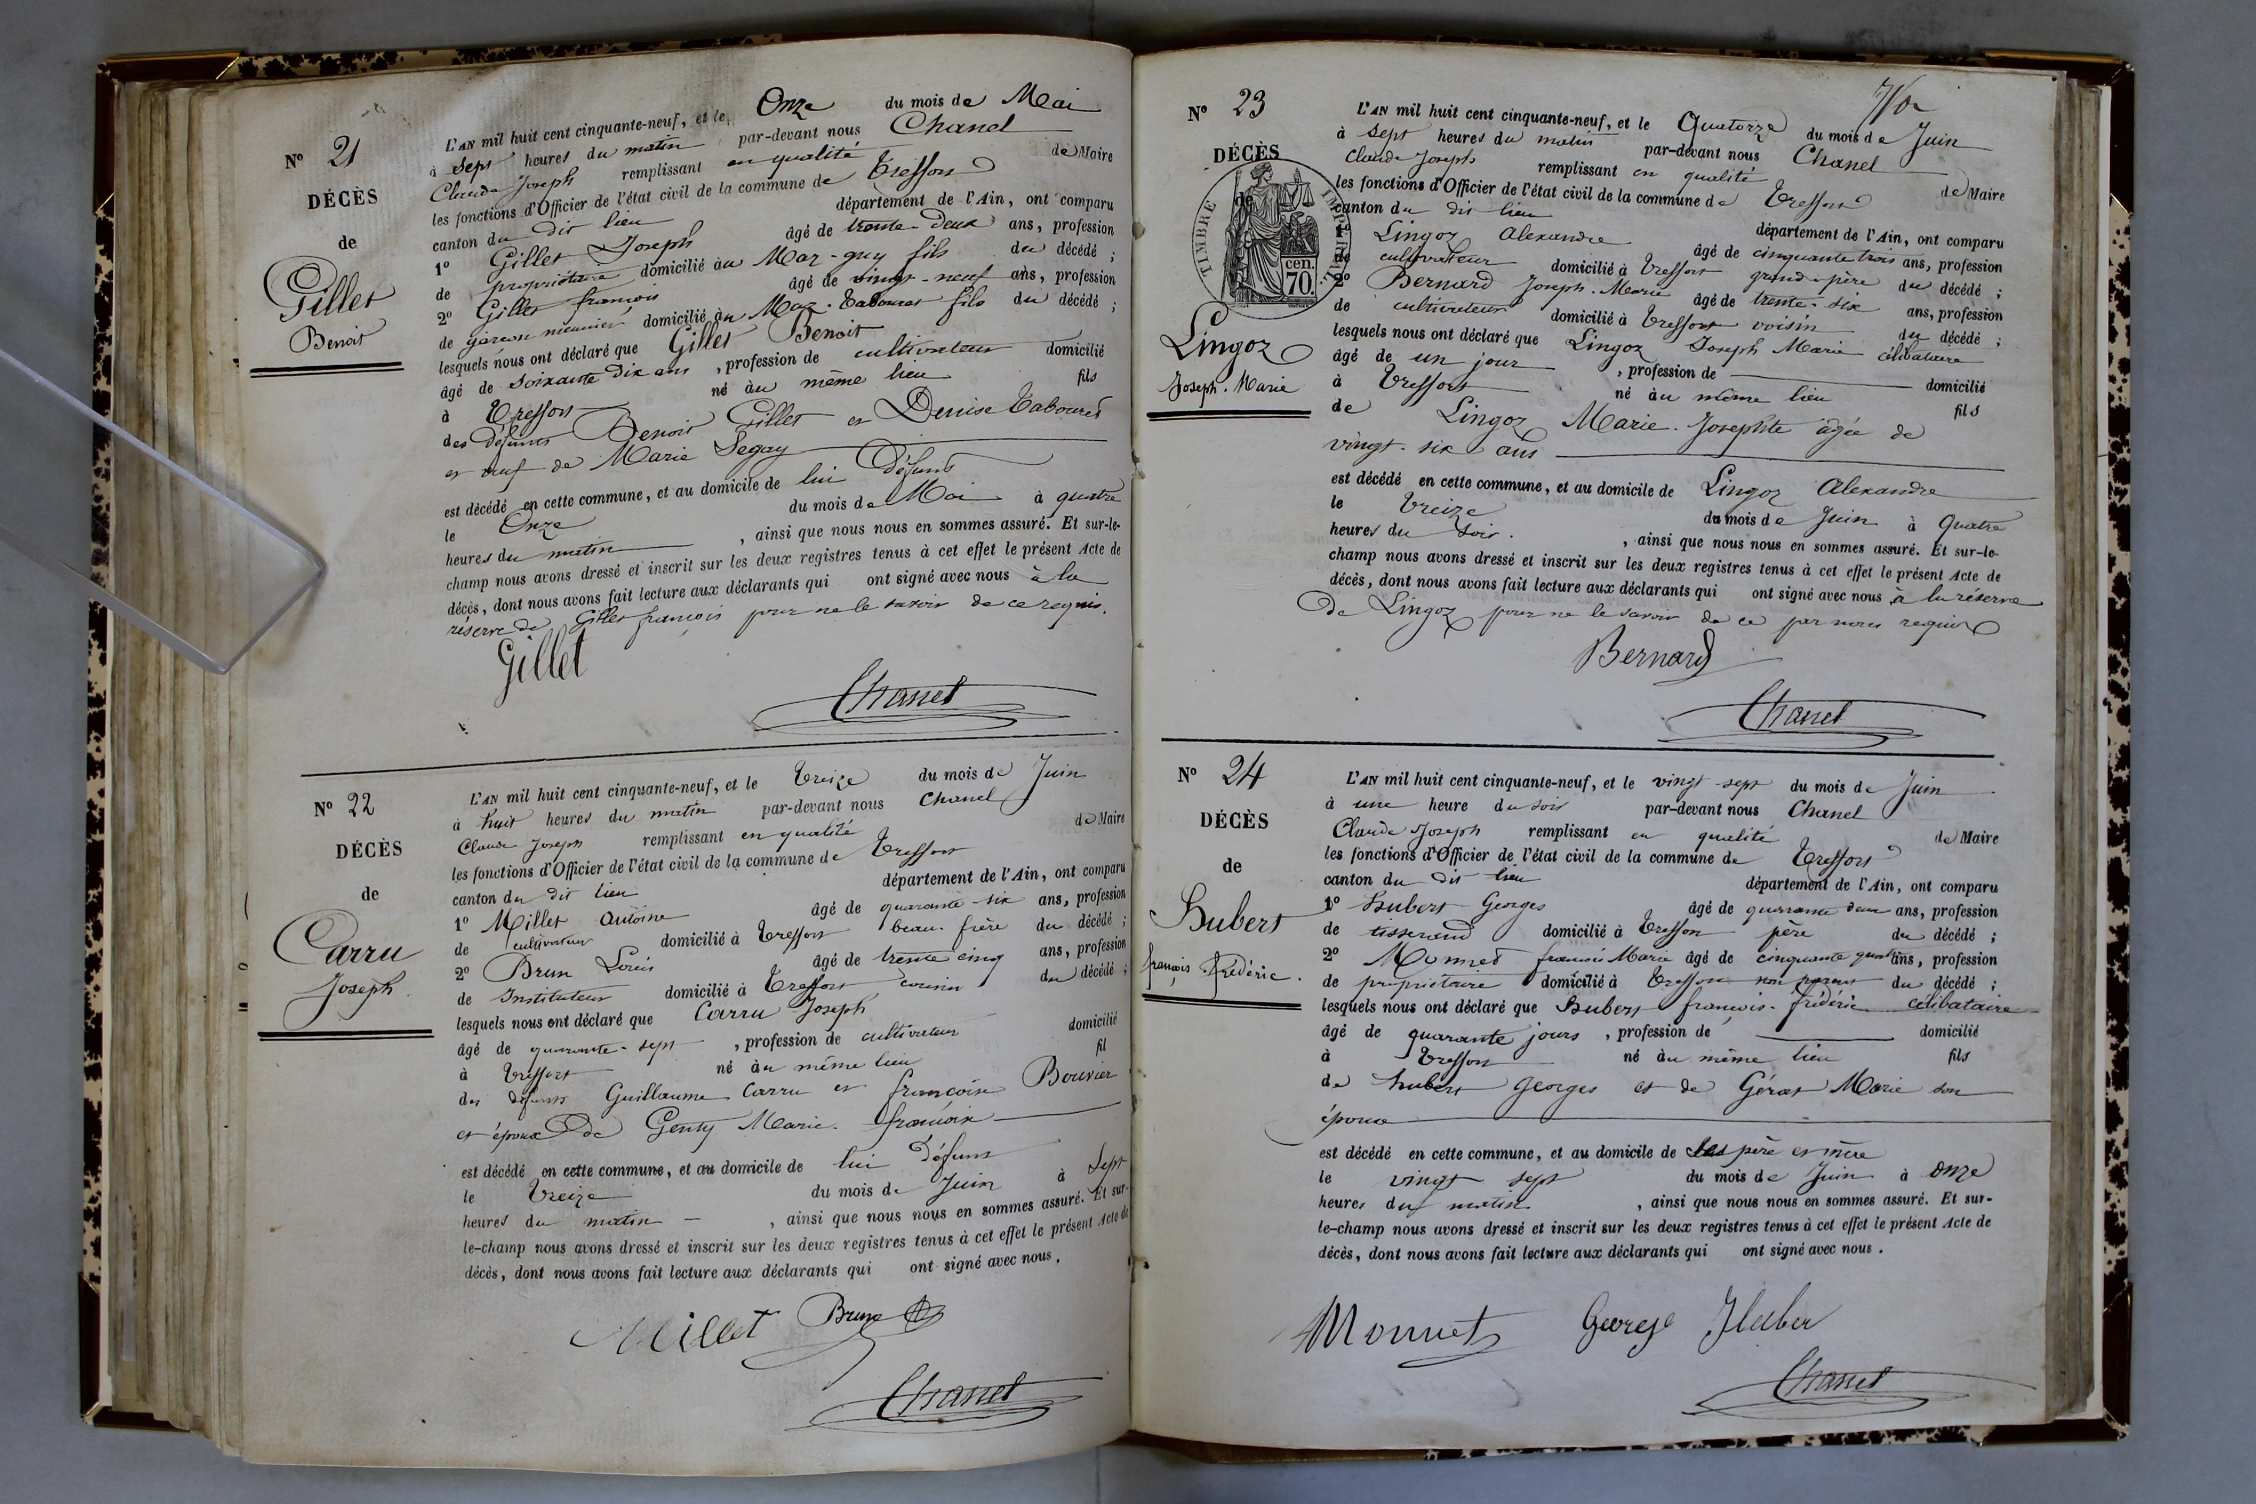 N° 21
DÉCÈS
de
Gillet
Benoit
L'AN mil huit cent cinquante-neuf, et le Onze du mois de Mai
à Sept heures du matin par-devant nous Chanel
Claude Joseph remplissant en qualité de Maire
les fonctions d'Officier de l'état civil de la commune de Treffort
canton du dit lieu département de l'Ain, ont comparu
1° Gillet Joseph âgé de trente-deux ans, profession
de propriétaire domicilié au Maz-guy fils du décédé ;
2° Gillet françois âgé de vingt-neuf ans, profession
de garcon meunier domicilié au Maz-Tabouret fils du décédé ;
lesquels nous ont déclaré que Gillet Benoit
âgé de soixante dix ans , profession de cultivateur domicilié
à Treffort né au même lieu fils
des défunts Benoit Gillet et Denise Tabouret
et veuf de Marie Segay
est décédé en cette commune, et au domicile de lui défunt
le Onze du mois de Mai à quatre
heures du matin , ainsi que nous nous en sommes assuré. Et sur-le-
champ nous avons dressé et inscrit sur les deux registres tenus à cet effet le présent Acte de
décès, dont nous avons fait lecture aux déclarants qui ont signé avec nous à la
réserve de Gillet françois pour ne le savoir de ce requis.
Gillet
Chanel
N° 22
DÉCÈS
de
Carru
Joseph
L'AN mil huit cent cinquante-neuf, et le Treize du mois de Juin
à huit heures du matin par-devant nous Chanel
Claude Joseph remplissant en qualité de Maire
les fonctions d'Officier de l'état civil de la commune de Treffort
canton du dit lieu département de l'Ain, ont comparu
1° Millet Antoine âgé de quarante-six ans, profession
de cultivateur domicilié à Treffort beau-frère du décédé ;
2° Brun Louis âgé de trente cinq ans, profession
de Instituteur domicilié à Treffort cousin du décédé ;
lesquels nous ont déclaré que Carru Joseph
âgé de quarante-sept , profession de cultivateur domicilié
à Treffort né au même lieu fil
des défunts Guillaume Carru et françoise Bouvier
et époux de Genty Marie-françoise
est décédé en cette commune, et au domicile de lui défunt
le Treize du mois de Juin à Sept
heures du matin , ainsi que nous nous en sommes assuré. Et sur-
le-champ nous avons dressé et inscrit sur les deux registres tenus à cet effet le présent Acte de
décès, dont nous avons fait lecture aux déclarants qui ont signé avec nous.
Millet Brun
Chanel
N° 23
DÉCÈS
de
TIMBRE IMPÉRIAL
cen.
70.
Lingoz
Joseph-Marie
L'AN mil huit cent cinquante-neuf, et le Quatorze du mois de Juin
à Sept heures du matin par-devant nous Chanel
Claude Joseph remplissant en qualité de Maire
les fonctions d'Officier de l'état civil de la commune de Treffort
canton du dit lieu département de l'Ain, ont comparu
Lingoz Alexandre âgé de cinquante trois ans, profession
de cultivateur domicilié à Treffort grand-père du décédé ;
2° Bernard Joseph-Marie âgé de trente-six ans, profession
de cultivateur domicilié à Treffort voisin du décédé ;
lesquels nous ont déclaré que Lingoz Joseph Marie célibataire
âgé de un jour , profession de domicilié
à Treffort né au même lieu fils
de Lingoz Marie-Josephte âgée de
vingt-six ans
est décédé en cette commune, et au domicile de Lingoz Alexandre
le Treize du mois de Juin à Quatre
heures du soir. , ainsi que nous nous en sommes assuré. Et sur-le-
champ nous avons dressé et inscrit sur les deux registres tenus à cet effet le présent Acte de
décès, dont nous avons fait lecture aux déclarants qui ont signé avec nous à la réserve
de Lingoz pour ne le savoir de ce par nous requis
Bernard
Chanel
N° 24
DÉCÈS
de
Hubert
françois-frédéric.
L'AN mil huit cent cinquante-neuf, et le vingt-sept du mois de Juin
à une heure du soir par-devant nous Chanel
Claude Joseph remplissant en qualité de Maire
les fonctions d'Officier de l'état civil de la commune de Treffort
canton du dit lieu département de l'Ain, ont comparu
1° Hubert Georges âgé de quarante deux ans, profession
de tisserand domicilié à Treffort père du décédé ;
2° Monnet françois Marie âgé de cinquante quatre ans, profession
de propriétaire domicilié à Treffort non parent du décédé ;
lesquels nous ont déclaré que Hubert françois-frédéric célibataire
âgé de quarante jours , profession de domicilié
à Treffort né au même lieu fils
de hubert Georges et de Gérat Marie son
épouse
est décédé en cette commune, et au domicile de ses père et mère
le vingt sept du mois de Juin à onze
heures du matin , ainsi que nous nous en sommes assuré. Et sur-
le-champ nous avons dressé et inscrit sur les deux registres tenus à cet effet le présent Acte de
décès, dont nous avons fait lecture aux déclarants qui ont signé avec nous.
Monnet George Huber
Chanel